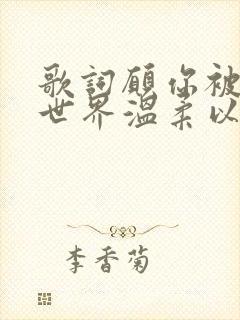 歌詞願你被
世界溫柔以
李香菊